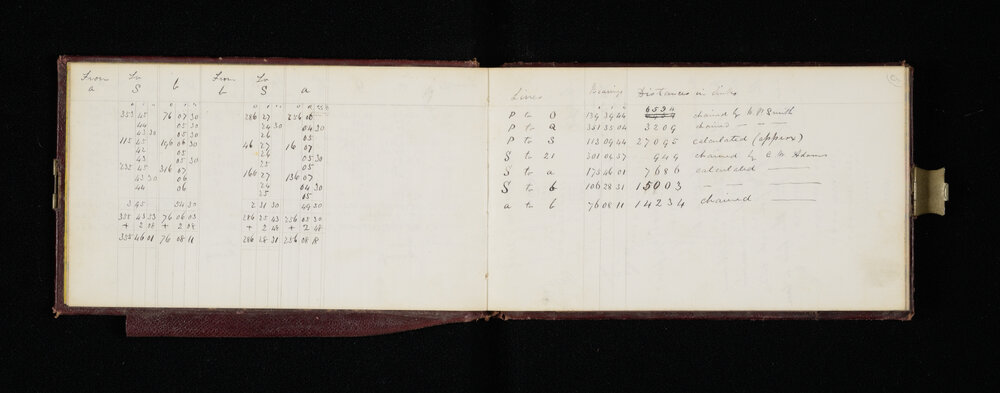 From To From To
a S b b S a
° ' " ° ' " ° ' " ° ' "
353 45 76 07 30 286 27 256 06
44 05 30 26 30 04 30
43 30 05 30 26 05
115 45 196 06 30 46 27 16 07
42 05 26
43 05 30 25 05 30
235 45 316 07 25 05
43 30 06 166 27 136 07
44 06 26 04 30
25 05
3 45 34 30 2 31 30 49 30
355 43 53 76 06 03 286 25 43 256 05 30
+ 2 08 + 2 08 + 2 48 + 2 48
355 46 01 76 08 11 286 28 31 256 08 18
Lines Bearings Distances in links
° ' " 6594
P to O 139 39 44 chained by W. N. Smith
P to Q 351 35 04 3209 chained — " —
P to S 113 09 44 27095 calculated (approx)
S to 21 301 04 57 949 chained by C. W. Adams
S to a 175 46 01 7686 calculated ——
S to b 106 28 31 15003 — — ——
a to b 76 08 11 14234 chained ——